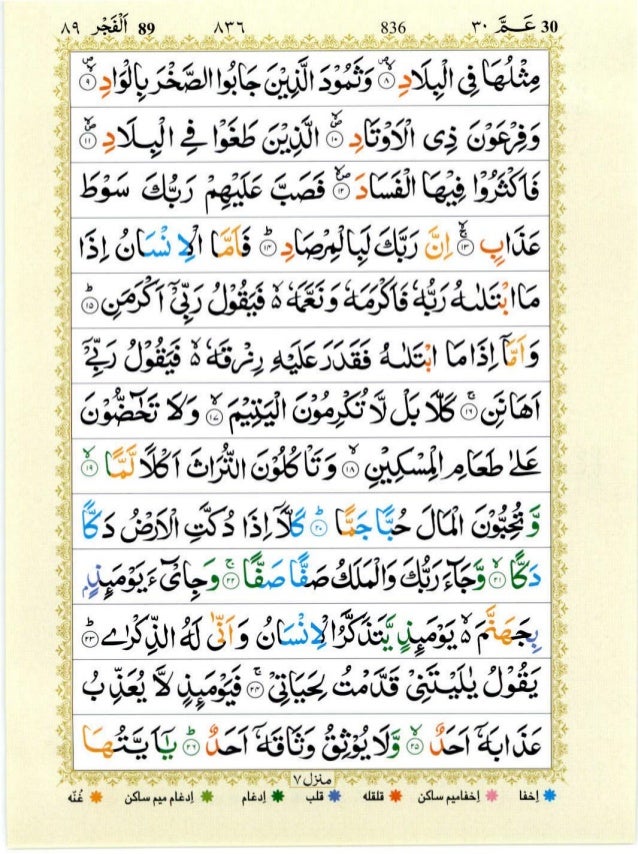 30 عَمَّ ٣٠ 836 ٨٣٦ 89 اَلْفَجْر ٨٩
مِثْلُهَا فِى الْبِلَادِ ۝٨ وَثَمُوْدَ الَّذِيْنَ جَابُوا الصَّخْرَ بِالْوَادِ ۝٩
وَفِرْعَوْنَ ذِى الْاَوْتَادِ ۝١٠ الَّذِيْنَ طَغَوْا فِى الْبِلَادِ ۝١١
فَاَكْثَرُوْا فِيْهَا الْفَسَادَ ۝١٢ فَصَبَّ عَلَيْهِمْ رَبُّكَ سَوْطَ
عَذَابٍ ۝١٣ اِنَّ رَبَّكَ لَبِالْمِرْصَادِ ۝١٤ فَاَمَّا الْاِنْسَانُ اِذَا
مَا ابْتَلٰىهُ رَبُّهٗ فَاَكْرَمَهٗ وَنَعَّمَهٗ ۵ فَيَقُوْلُ رَبِّىْٓ اَكْرَمَنِ ۝١٥
وَاَمَّآ اِذَا مَا ابْتَلٰىهُ فَقَدَرَ عَلَيْهِ رِزْقَهٗ ۵ فَيَقُوْلُ رَبِّىْٓ
اَهَانَنِ ۝١٦ كَلَّا بَلْ لَّا تُكْرِمُوْنَ الْيَتِيْمَ ۝١٧ وَلَا تَحٰٓضُّوْنَ
عَلٰى طَعَامِ الْمِسْكِيْنِ ۝١٨ وَتَاْكُلُوْنَ التُّرَاثَ اَكْلًا لَّمًّا ۝١٩
وَّتُحِبُّوْنَ الْمَالَ حُبًّا جَمًّا ۝٢٠ كَلَّآ اِذَا دُكَّتِ الْاَرْضُ دَكًّا
دَكًّا ۝٢١ وَّجَآءَ رَبُّكَ وَالْمَلَكُ صَفًّا صَفًّا ۝٢٢ وَجِاىْٓءَ يَوْمَئِذٍۭ
بِجَهَنَّمَ ۵ يَوْمَئِذٍ يَّتَذَكَّرُ الْاِنْسَانُ وَاَنّٰى لَهُ الذِّكْرٰى ۝٢٣
يَقُوْلُ يٰلَيْتَنِىْ قَدَّمْتُ لِحَيَاتِىْ ۝٢٤ فَيَوْمَئِذٍ لَّا يُعَذِّبُ
عَذَابَهٗٓ اَحَدٌ ۝٢٥ وَّلَا يُوْثِقُ وَثَاقَهٗٓ اَحَدٌ ۝٢٦ يٰٓاَيَّتُهَا
منزل ٧
اِخفا اِخفامیم ساکن قلقله قلب اِدغام اِدغام میم ساکن غُنّه